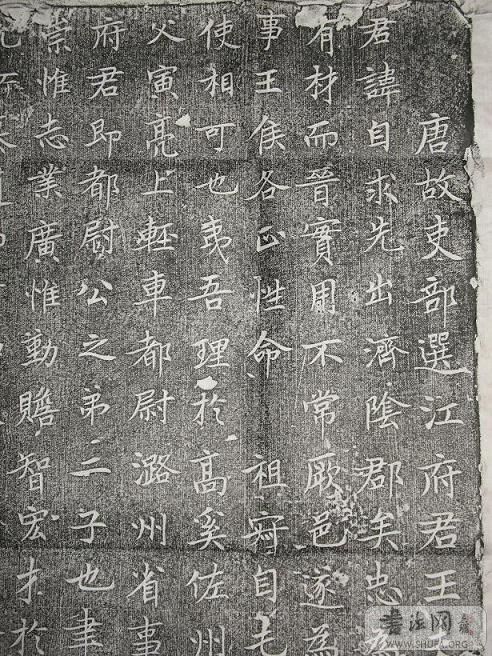 唐故吏部選江府君王
君諱自求先出濟陰郡矣忠
有材而晉實用不常厥邑遂為
事王侯各正性命 祖 自
使相可也夷吾理於高奚佐州
父寅亮上輕車都尉潞州省事
府君即都尉公之弟二子也聿
崇惟志業廣惟勤贍智宏才於
书法网
WWW.SHUFA.ORG